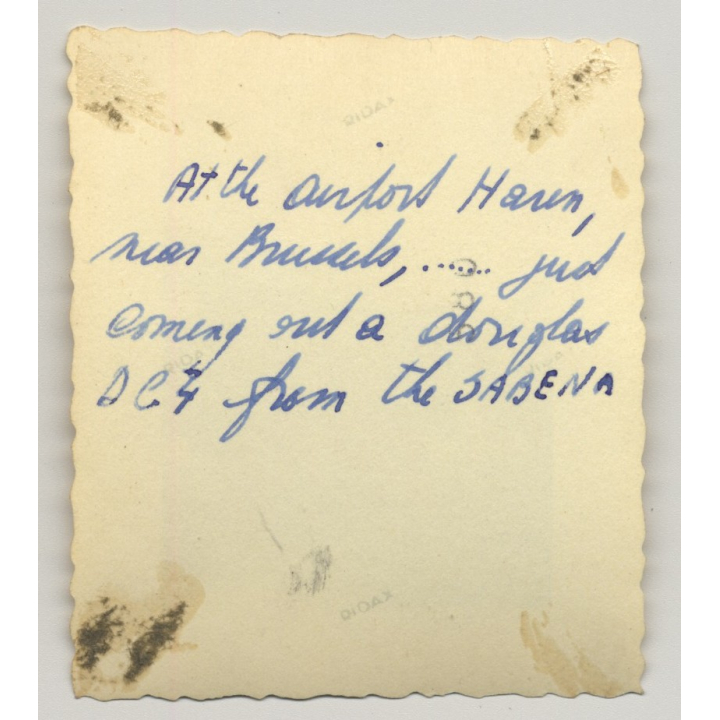 RIDAX
At the airport Haren,
near Brussels, ....... just
Coming out a douglas
DC4 from the SABENA
RIDAX
RIDAX